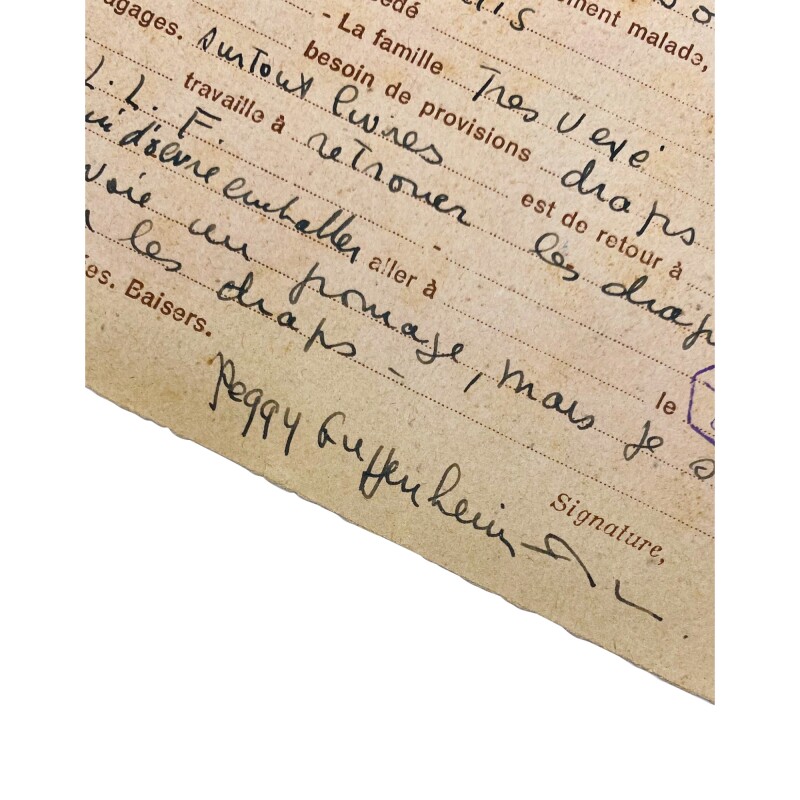 édé
ment malade,
- La famille Tres vexé
agages. surtout livres
besoin de provisions draps
L. L. F. travaille à retrouver
est de retour à les draps
d'être emballer aller à
voie un fromage, mais je s
le
les draps -
es. Baisers.
Signature,
Peggy Guggenheim